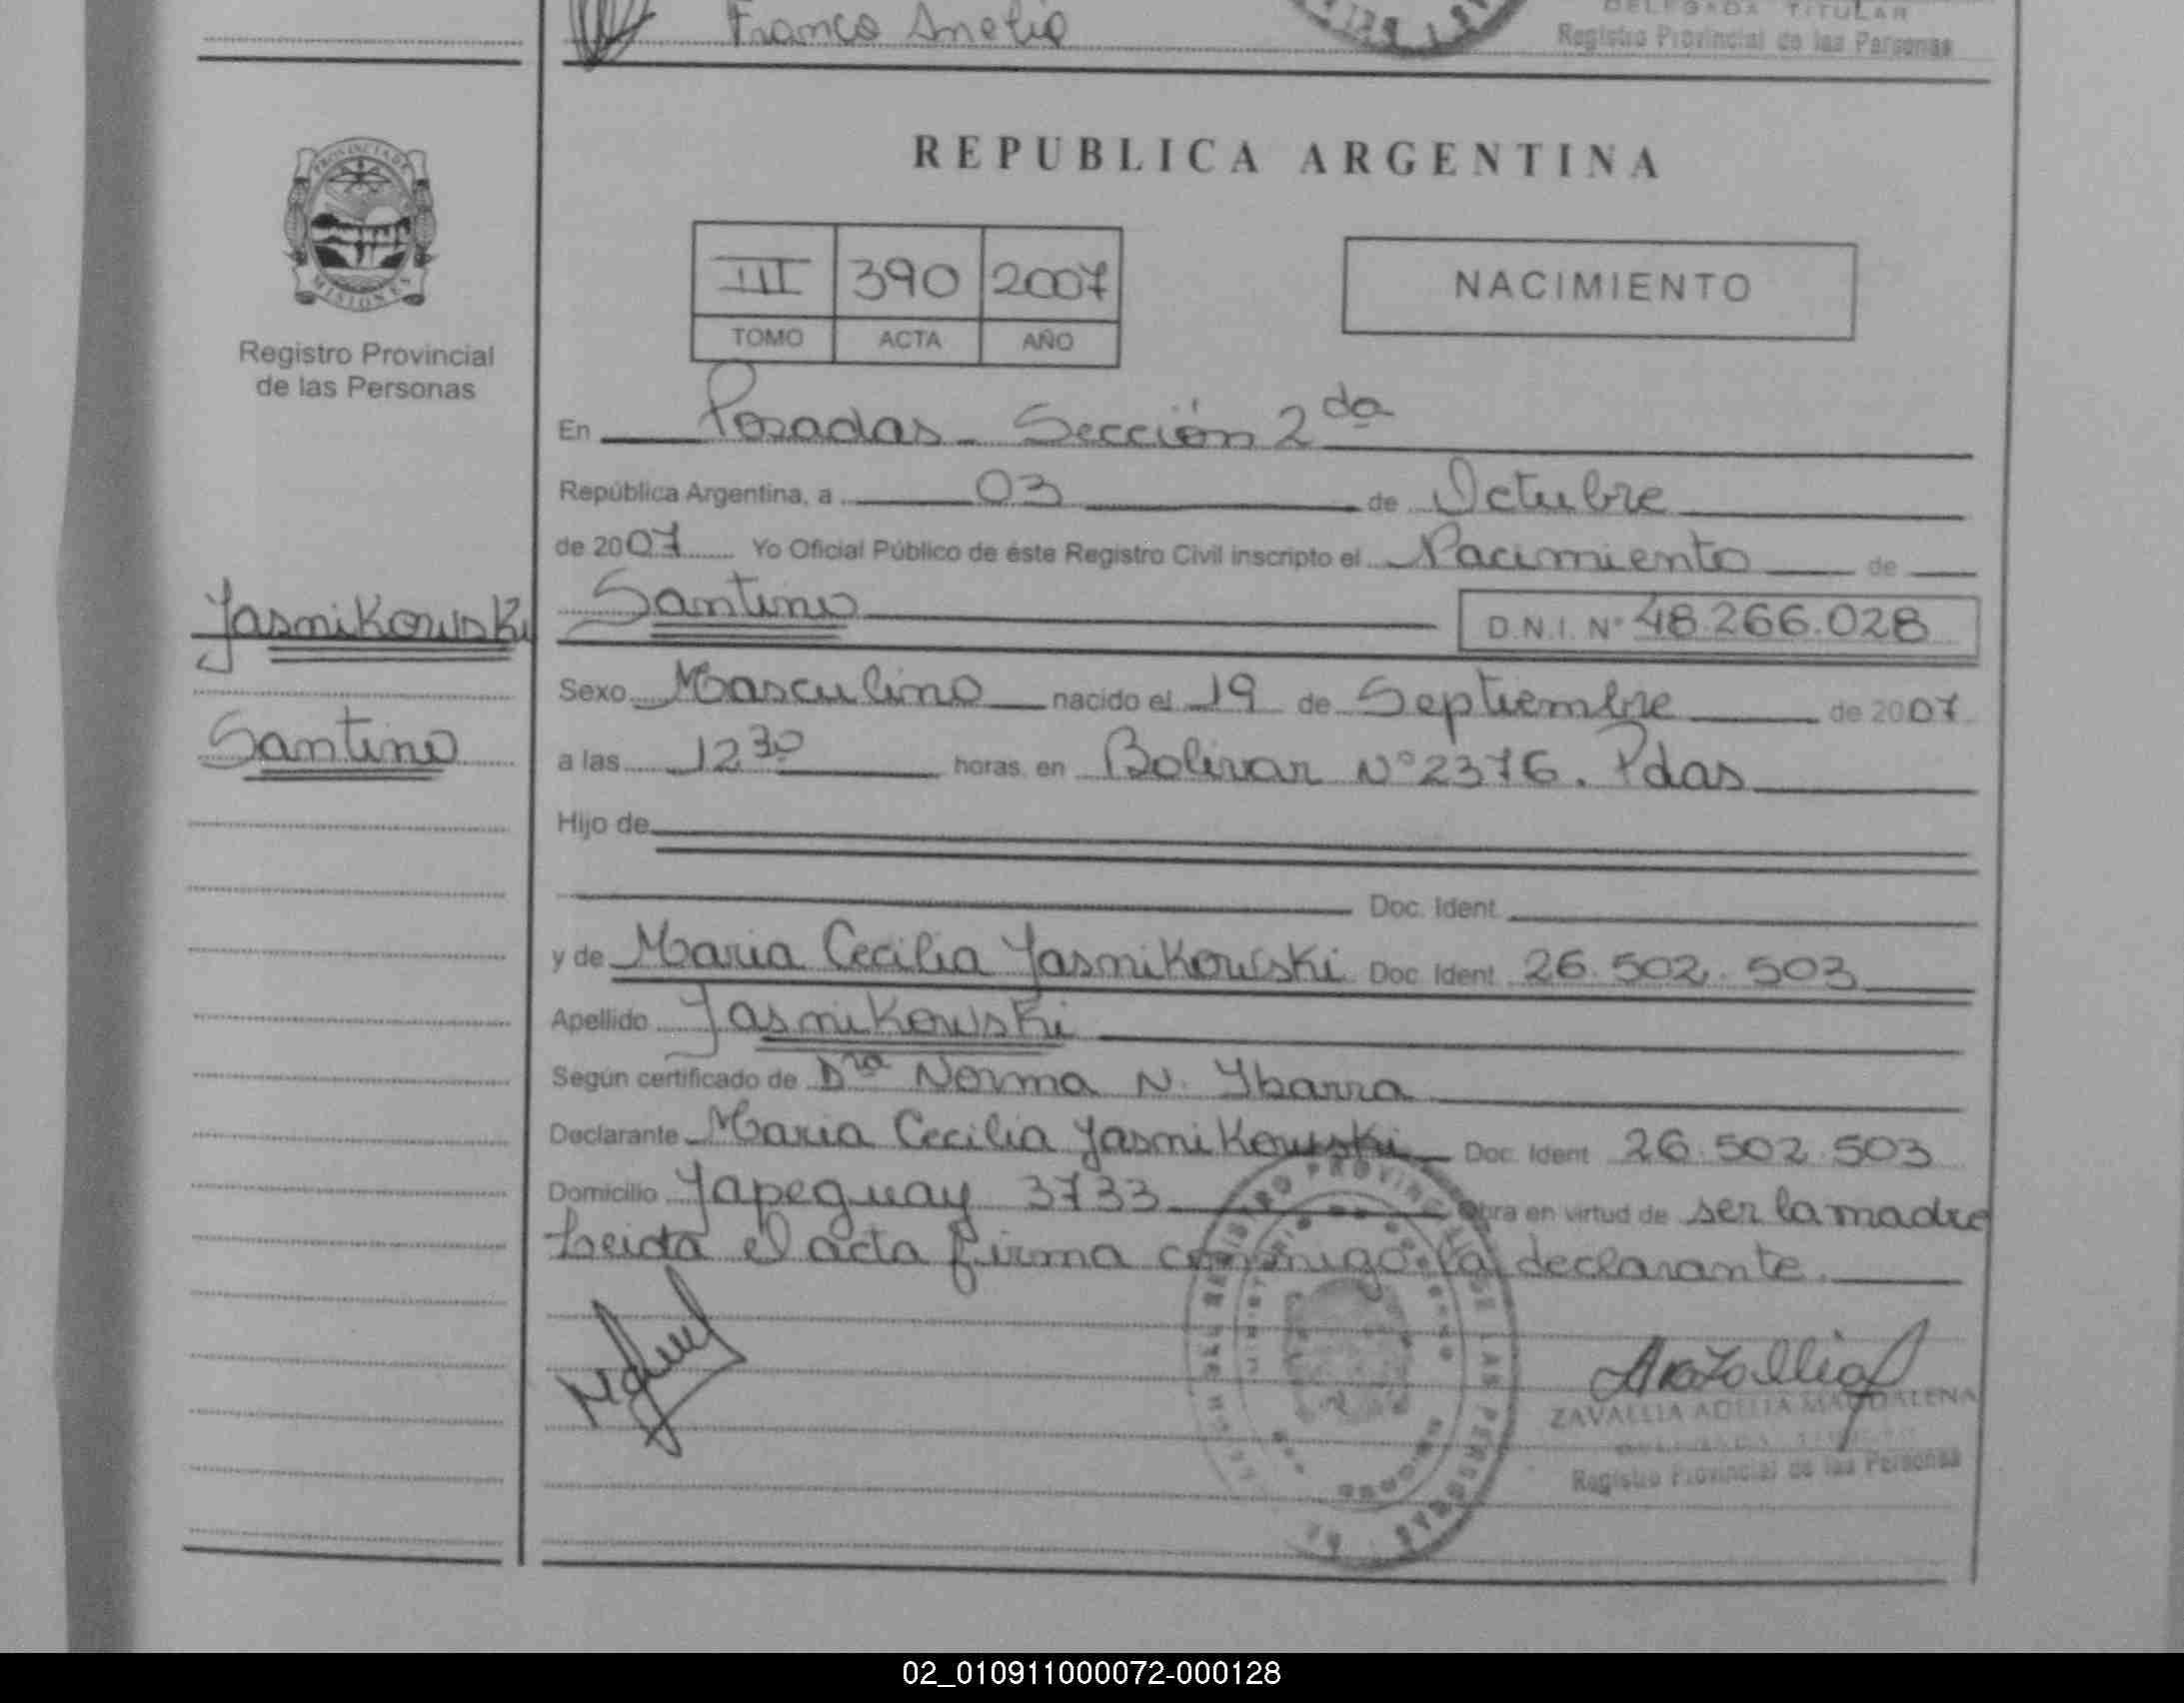 Franco Amelia
DELEGADA TITULAR
Registro Provincial de las Personas
PROVINCIA DE
MISIONES
Registro Provincial
de las Personas
Yasnikowski
Santino
REPUBLICA ARGENTINA
III 390 2007
TOMO ACTA AÑO
NACIMIENTO
En Posadas - Sección 2da
República Argentina, a 03 de Octubre
de 2007 Yo Oficial Público de éste Registro Civil inscripto el Nacimiento de
Santino D.N.I. N° 48.266.028
Sexo Masculino nacido el 19 de Septiembre de 2007
a las 12 30 horas, en Bolivar N° 2376. Pdas
Hijo de
Doc. Ident.
y de Maria Cecilia Yasnikowski Doc. Ident. 26.502.503
Apellido Yasnikowski
Según certificado de Dra Norma N. Ybarra
Declarante Maria Cecilia Yasnikowski Doc. Ident 26.502.503
Domicilio Yapeguay 3733 Obra en virtud de ser la madre
Leida el acta firma conmigo la declarante.
REGISTRO PROVINCIAL DE LAS PERSONAS
ZAVALLIA ADELIA MAGDALENA
DELEGADA TITULAR
Registro Provincial de las Personas
02_010911000072-000128